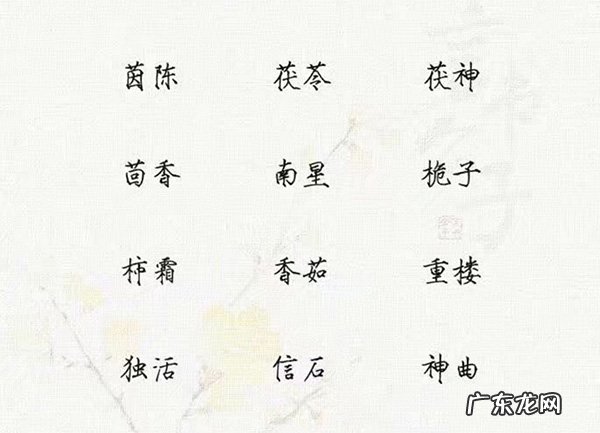 茵陈 茯苓 茯神
茴香 南星 桅子
柿霜 香茹 重楼
独活 信石 神曲
广东龙网